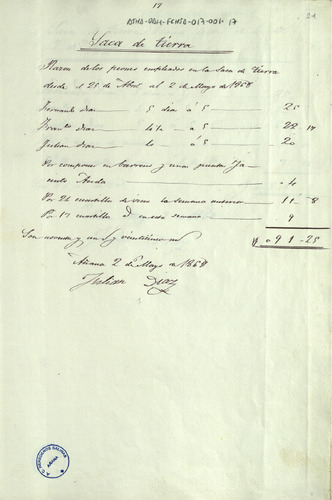 17
21
Saca de tierra
Razon de los peones empleados en la Saca de tierra
desde el 25 de Abril al 2 de Mayo de 1868
Fernando Diaz 5 dias á 5 25
Diaz 4½ á 5 22 17
Julian Diaz 4 á 5 20
Por componer un barreno y una punta Ja
cinto 4
Por 26 cuartillos de vino la semana anterior 11 8
Por 17 cuartillos de esta semana 9
Son noventa y un y veinticinco
91-25
Añana 2 de Mayo de 1868
Julian Diaz